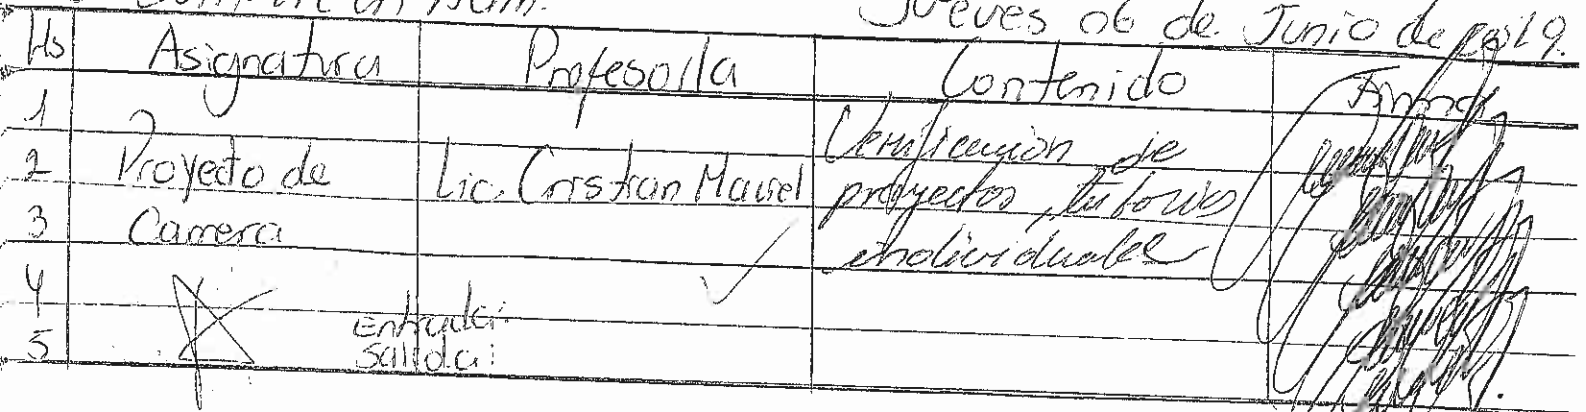 Jueves 06 de Junio de 2019.
Hs Asignatura Profesor/a Contenido Firma
1
2 Proyecto de Lic. Cristian Mauriel Verificación de
3 Carrera proyectos, tutorías
individuales
4 Entrada:
5 Salida: